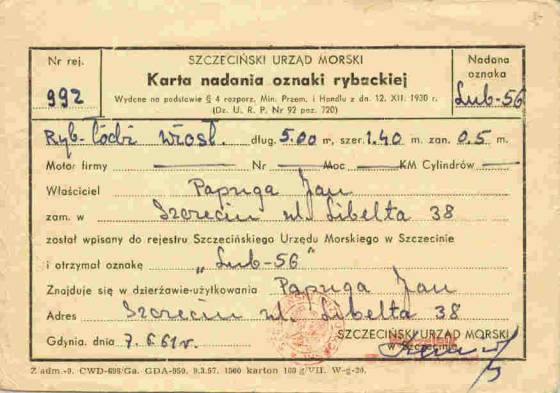 Nr rej.
992
SZCZECIŃSKI URZĄD MORSKI
Karta nadania oznaki rybackiej
Wydane na podstawie § 4 rozporz. Min. Przem. i Handlu z dn. 12. XII. 1930 r.
(Dz. U. R. P. Nr 92 poz. 720)
Nadana
oznaka
Lub-56
Ryb. łódź wiosł. dług. 5.00 m, szer. 1.40 m. zan. 0.5 m.
Motor firmy — Nr — Moc — KM Cylindrów —
Właściciel Papruga Jan
zam. w Szczecin ul. Libelta 38
został wpisany do rejestru Szczecińskiego Urzędu Morskiego w Szczecinie
i otrzymał oznakę „Lub-56"
Znajduje się w dzierżawie-użytkowania Papruga Jan
Adres Szczecin ul. Libelta 38
Gdynia, dnia 7.6.61 r.
SZCZECIŃSKI URZĄD MORSKI
w Szczecinie
Z adm.-9. CWD-698/Ga. GDA-950. 9.3.57. 1500 karton 160 g/VII. W-g-20.